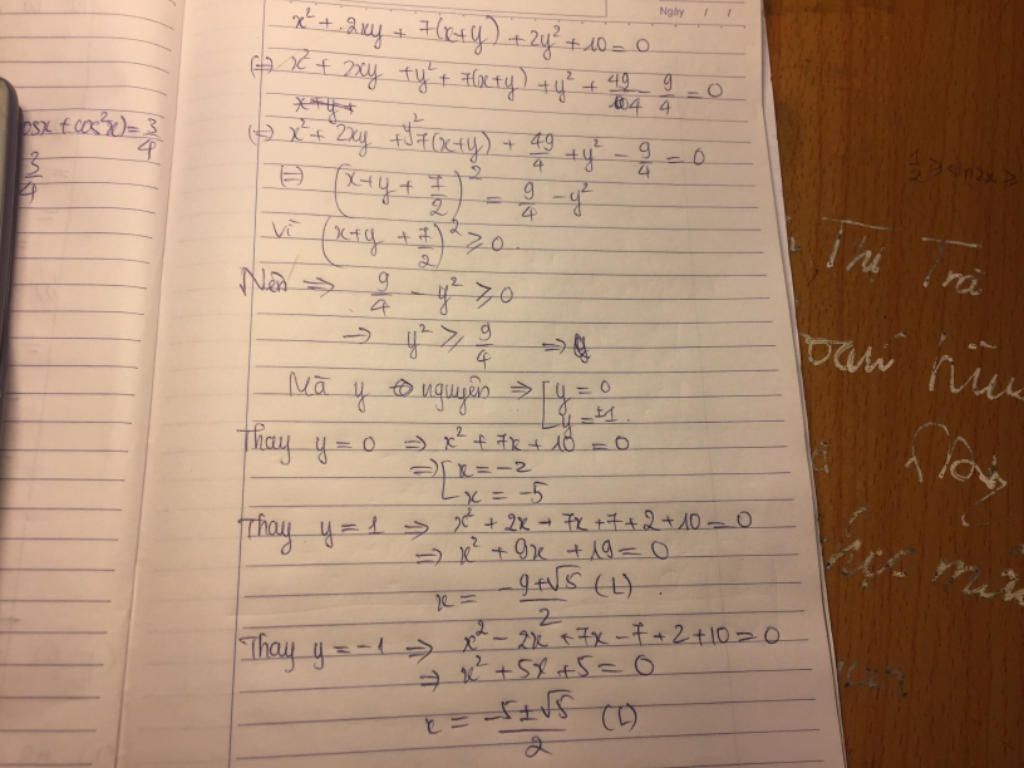 Ngày / /
x² + 2xy + 7(x+y) + 2y² + 10 = 0
(=) x² + 2xy + y² + 7(x+y) + y² + 49/4 - 9/4 = 0
x+y+
(=) x² + 2xy + y² 7(x+y) + 49/4 + y² - 9/4 = 0
(=) (x+y+7/2)² = 9/4 - y²
Vì (x+y+7/2)² ≥ 0.
Nên => 9/4 - y² ≥ 0
=> y² ≥ 9/4 =>
Mà y nguyên => [y = 0
y = ±1.
Thay y = 0 => x² + 7x + 10 = 0
=> [x = -2
x = -5
Thay y = 1 => x² + 2x + 7x + 7 + 2 + 10 = 0
=> x² + 9x + 19 = 0
x = (-9±√5)/2 (L).
Thay y = -1 => x² - 2x + 7x - 7 + 2 + 10 = 0
=> x² + 5x + 5 = 0
x = (-5±√5)/2 (L)
osx + cos²x) = 3/4
3/4
Thị Trà